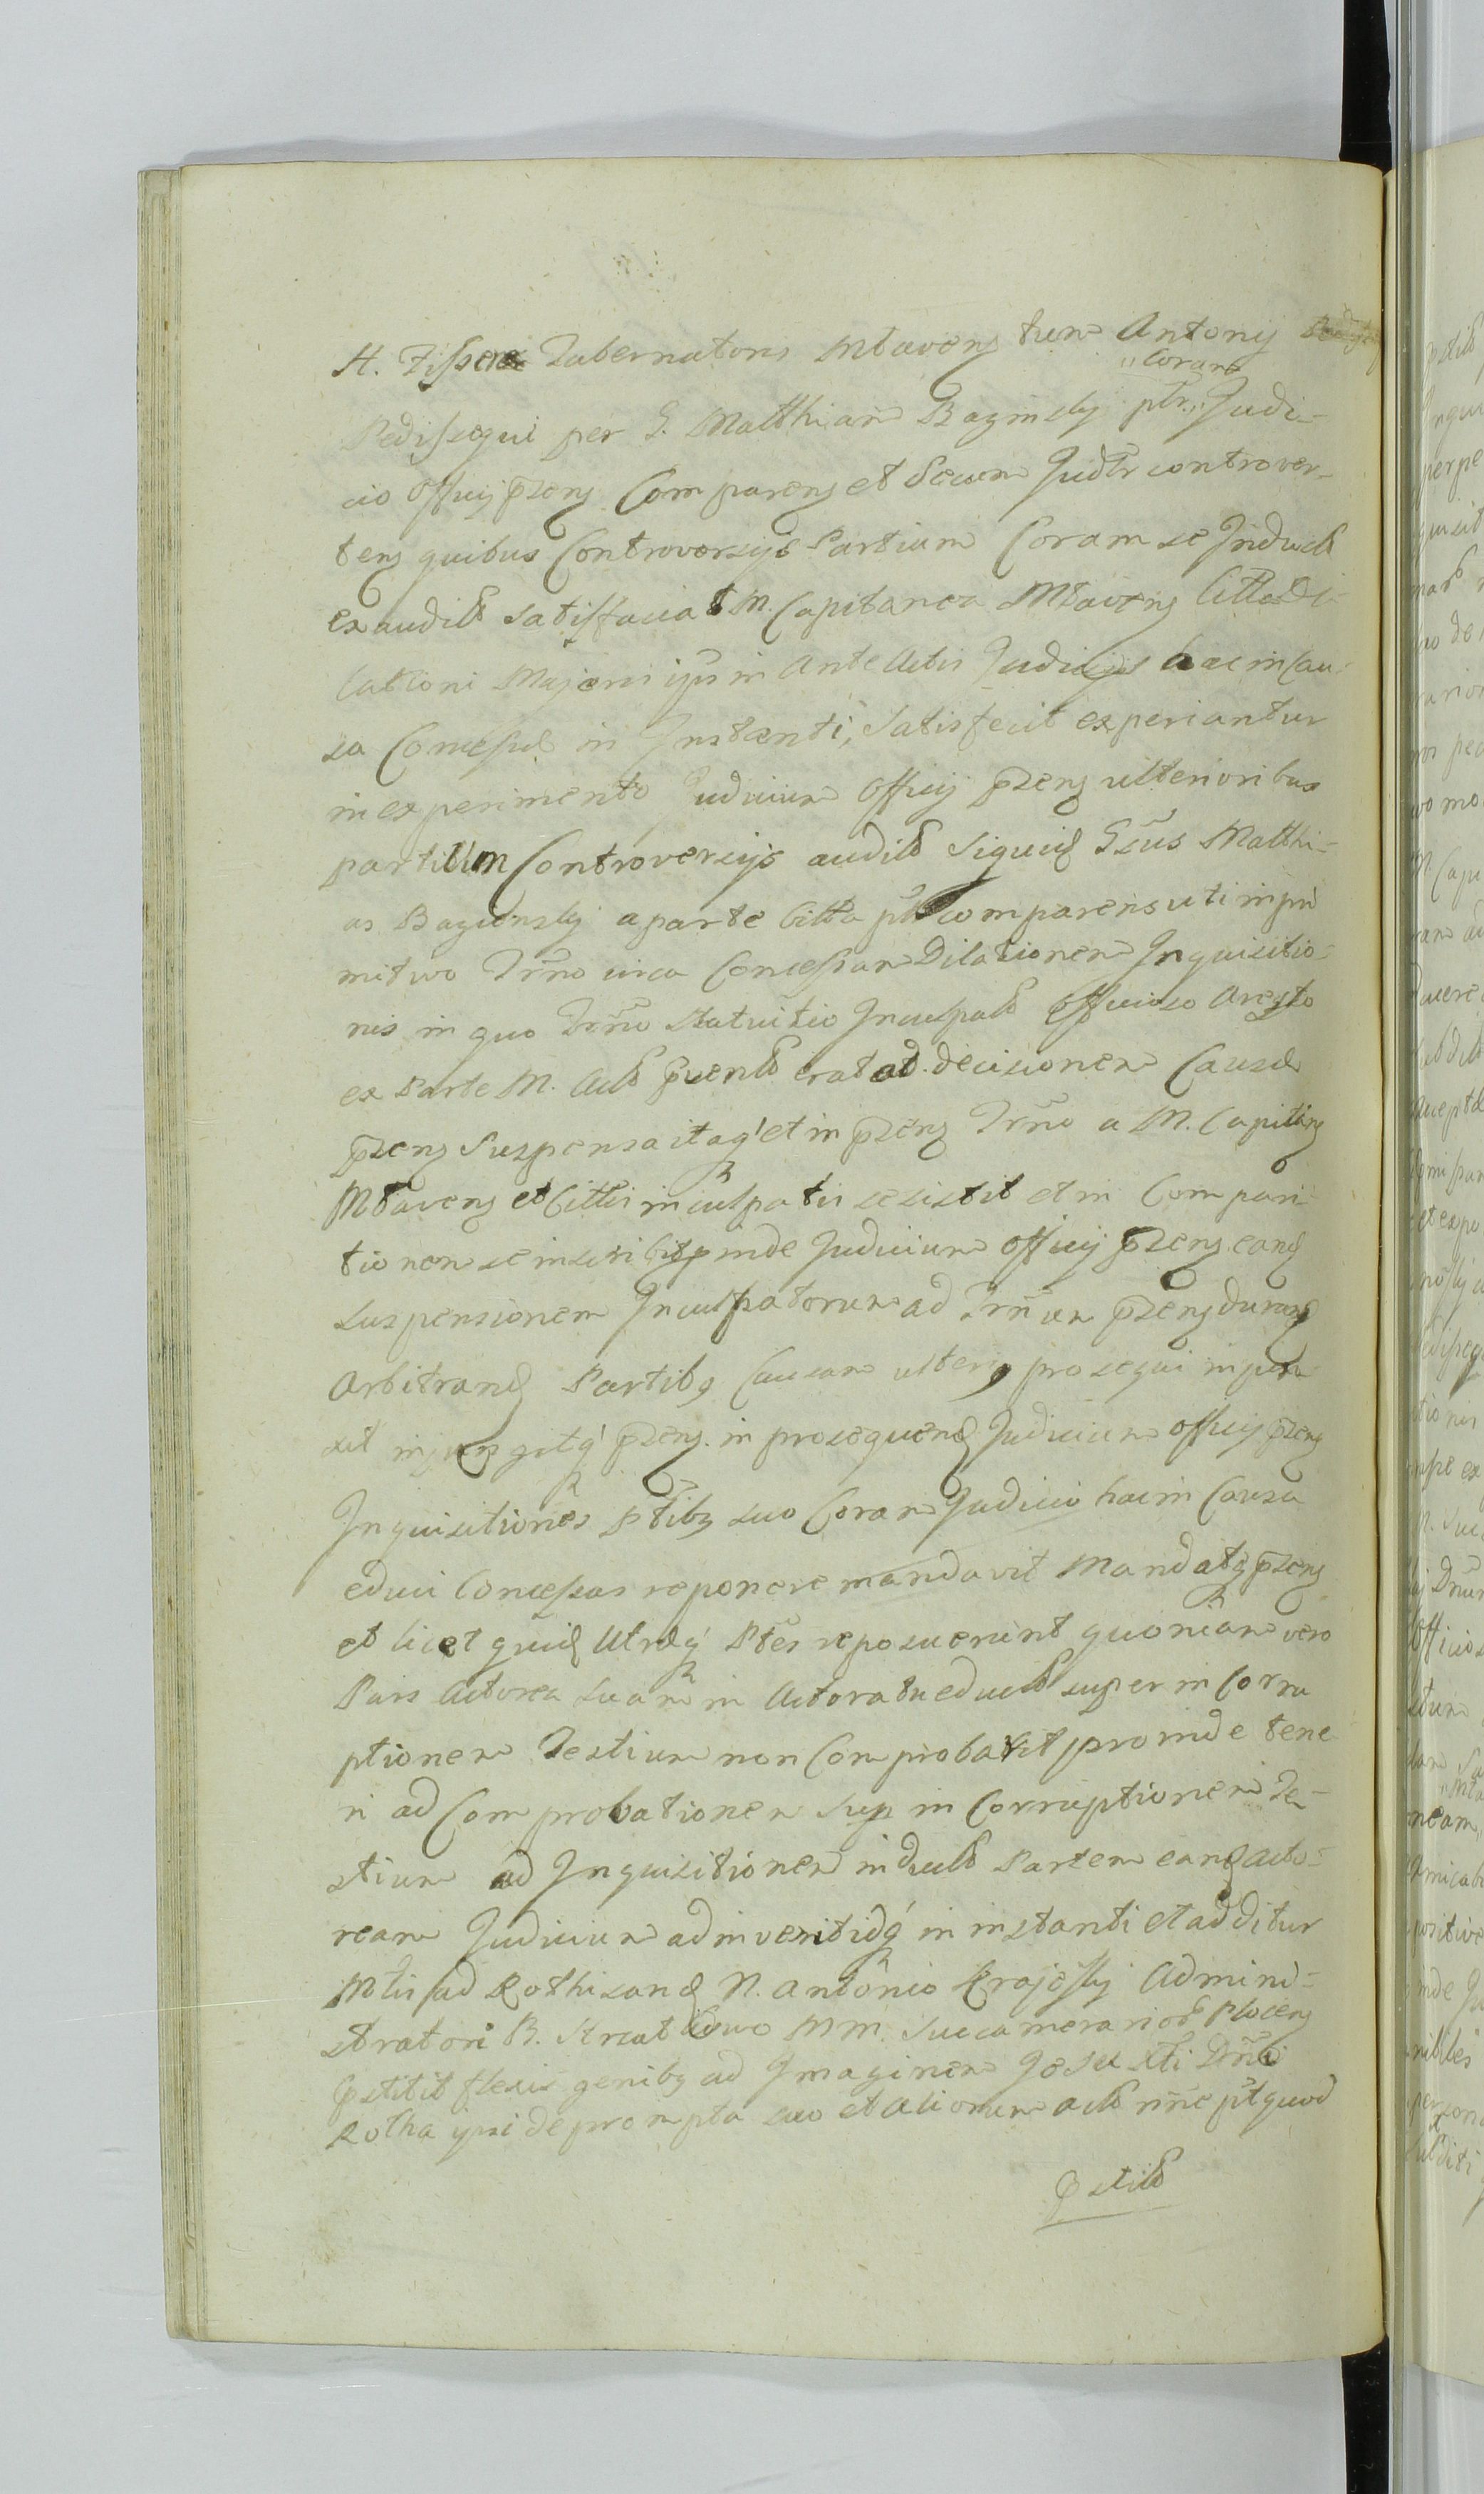 H. Tabernatoris Mlavens tum Antonij
"Coram
Pedissequi per G. Matthiam Bagiensky ptr" Judi-
cio Officij pzens Comparens et Secum Judtr controver-
tens quibus Controversijs Partium Coram se Induct
exauditt satisfaciat M. Capitanea Mlavens Citta Di-
lationi Majoris ipsi in Ante Actis Judicijs hac in Cau-
sa Concess in Instanti, Satisfecit experiantur
in experimento Judicium Officij pzens ulterioribus
partium Controversijs audittt siquid Gsus Matthi-
as Bagiensky a parte Citta comparens uti in pri
mitivo Trno circa Concessam Dilationem Inquisitio-
nis in quo Trno Statuitio Inculpatt officioso Aresto
ex Parte M. Act pvent erat ad decisionem Causæ
pzens Suspensa itaq' et in pzens Trno a M. Capitans
Mlavens et Cittis inculpatis se sistit et in Compari-
tionem se inscribit pinde Judicium Officij pzens eand
suspensionem Inculpatorum ad Trnum pzens durand
Arbitrand Partibq Causam ulteriq prosequi injun-
xit injungitq' pzens in prosequend Judicium Officij pzens
Inquisitiones ptibq suo Coram Judicio hac in Causa
educi Concessas reponere mandavit Mandatq' pzens
et licet quid Utræq' Ptes reposuerint quoniam vero
Pars Actorea suam in Actoratu educt super in Corru
ptionem Testium non Comprobavit proinde tene
ri ad Comprobationem sup in Corruptionem Te-
stium ad Inquisitionem induct Partem eand acto-
ream Judicium adinvenit idq' in instanti et additur
Mtis ad Rothisand N. Antonio Krajesky Admini-
stratori B. MM. Succamerarior Plocens
pstitit flexis genibq ad Imaginem Jesu Xti Drni
Rotha ipsi deprompta suo et aliorum act nne pt quod
pstitt